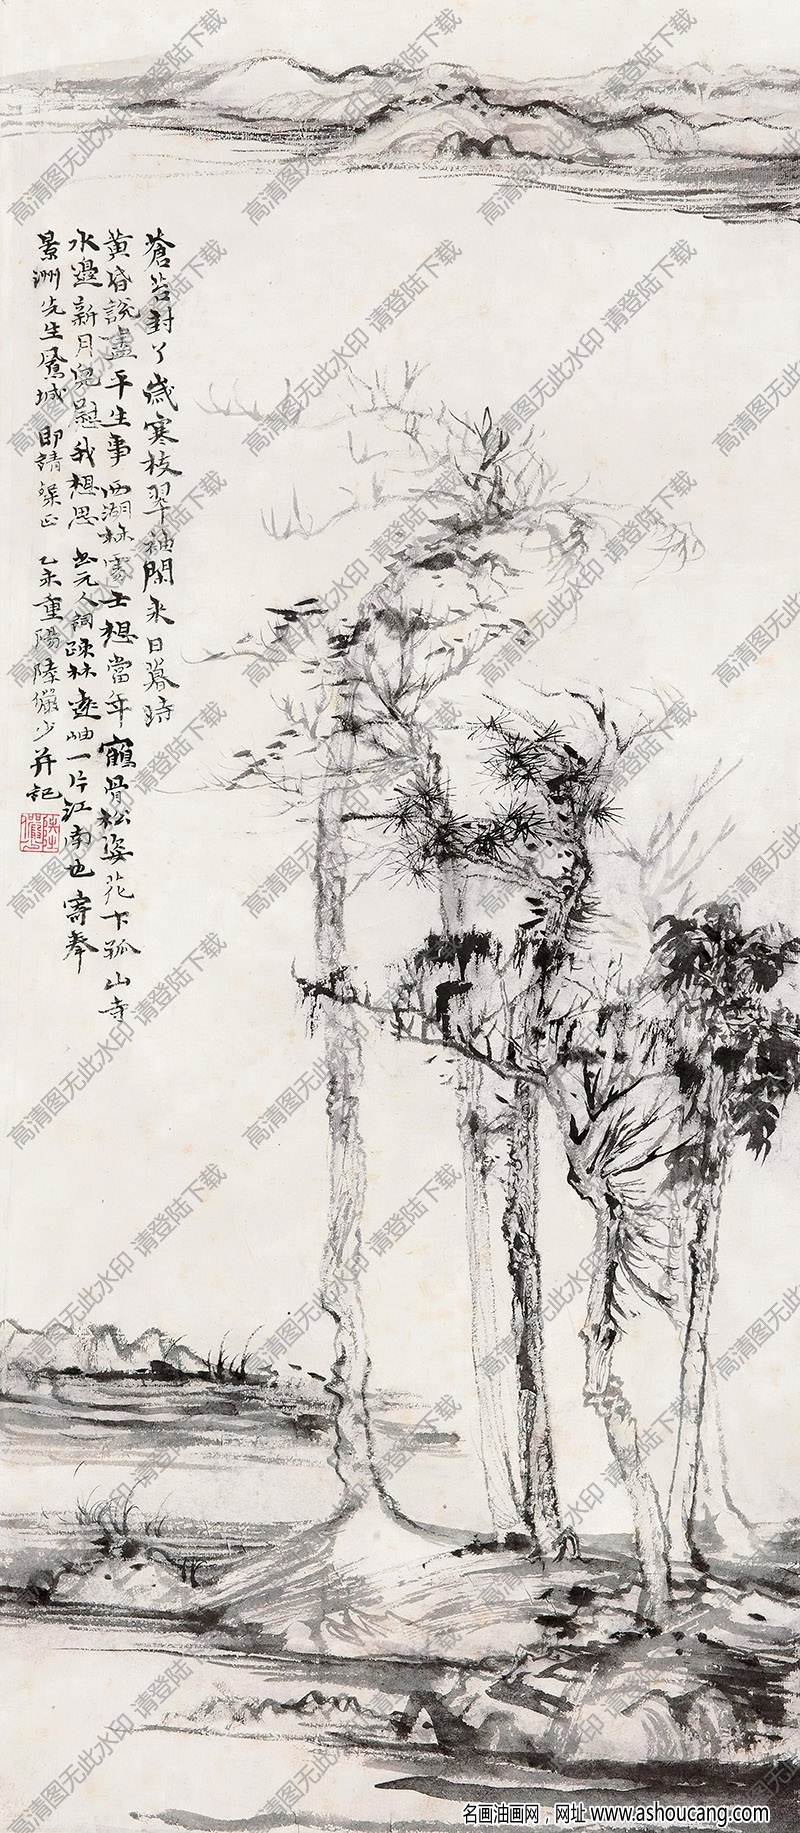 蒼苔封了歲寒枝翠袖閑來日暮時
黃昏說盡平生事西湖林處士想當年鶴骨松姿花下孤山寺
水邊新月兒慰我想思書元人詞疎林遠岫一片江南也寄奉
景洲先生鳳城即請粲正乙未重陽陸儼少并記
陸儼少
高清图无此水印 请登陆下载
名画油画网，网址 www.ashoucang.com